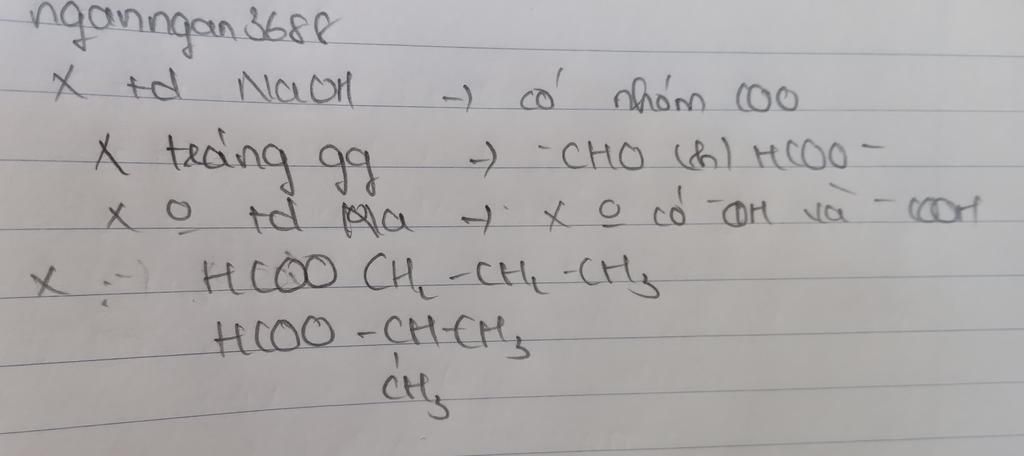 ngannngan3688
X +d NaOH → có nhóm COO
X tráng gg → -CHO (h) HCOO-
X O +d Na → X O có -OH và -COOH
X : HCOO CH2 -CH2 -CH3
HCOO -CH-CH3
CH3